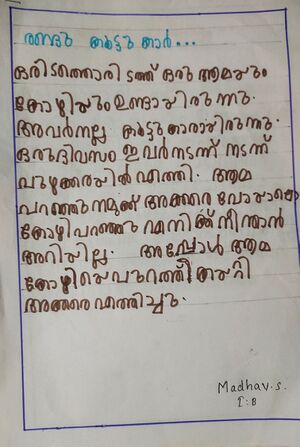 രണ്ടു കൂട്ടുകാർ...
ഒരിടത്തൊരിടത്ത് ഒരു ആമയും
കോഴിയും ഉണ്ടായിരുന്നു.
അവർ നല്ല കൂട്ടുകാരായിരുന്നു.
ഒരു ദിവസം ഇവർ നടന്ന് നടന്ന്
പുഴക്കരയിൽ എത്തി. ആമ
പറഞ്ഞു നമുക്ക് അക്കരെ പോയാലൊ
കോഴി പറഞ്ഞു എനിക്ക് നീന്താൻ
അറിയില്ല. അപ്പോൾ ആമ
കോഴിയെ പുറത്ത് കയറ്റി
അക്കരെ എത്തിച്ചു.
Madhav.S.
I:B